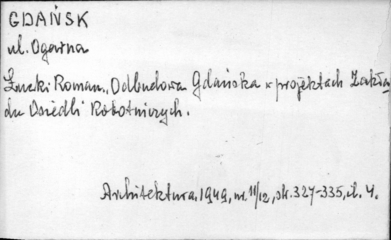 GDAŃSK
ul. Ogarna
Łucki Roman, Odbudowa Gdańska w projektach Zakła
du Osiedli Robotniczych.
Architektura, 1949, nr 11/12, str. 327-335, il. 4.